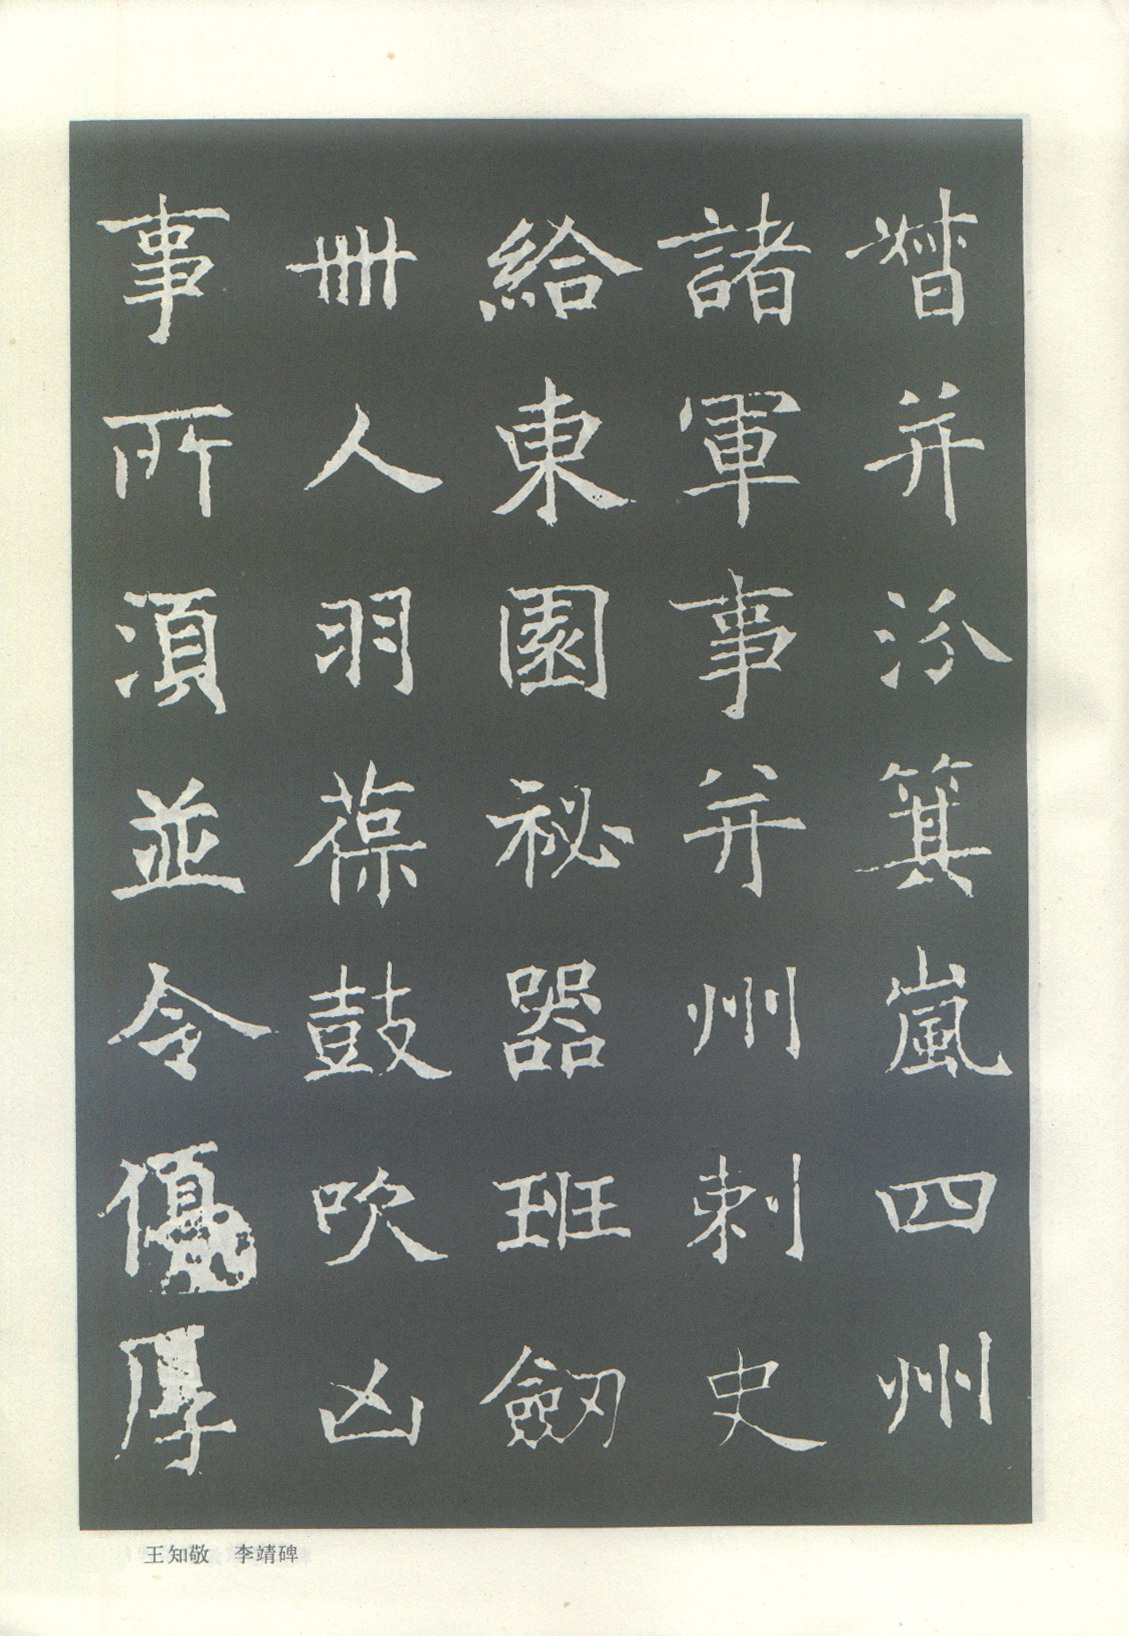 督并汾箕嵐四州
諸軍事并州刺史
給東園祕器班劒
卌人羽葆鼓吹凶
事所湏並令優厚
王知敬 李靖碑